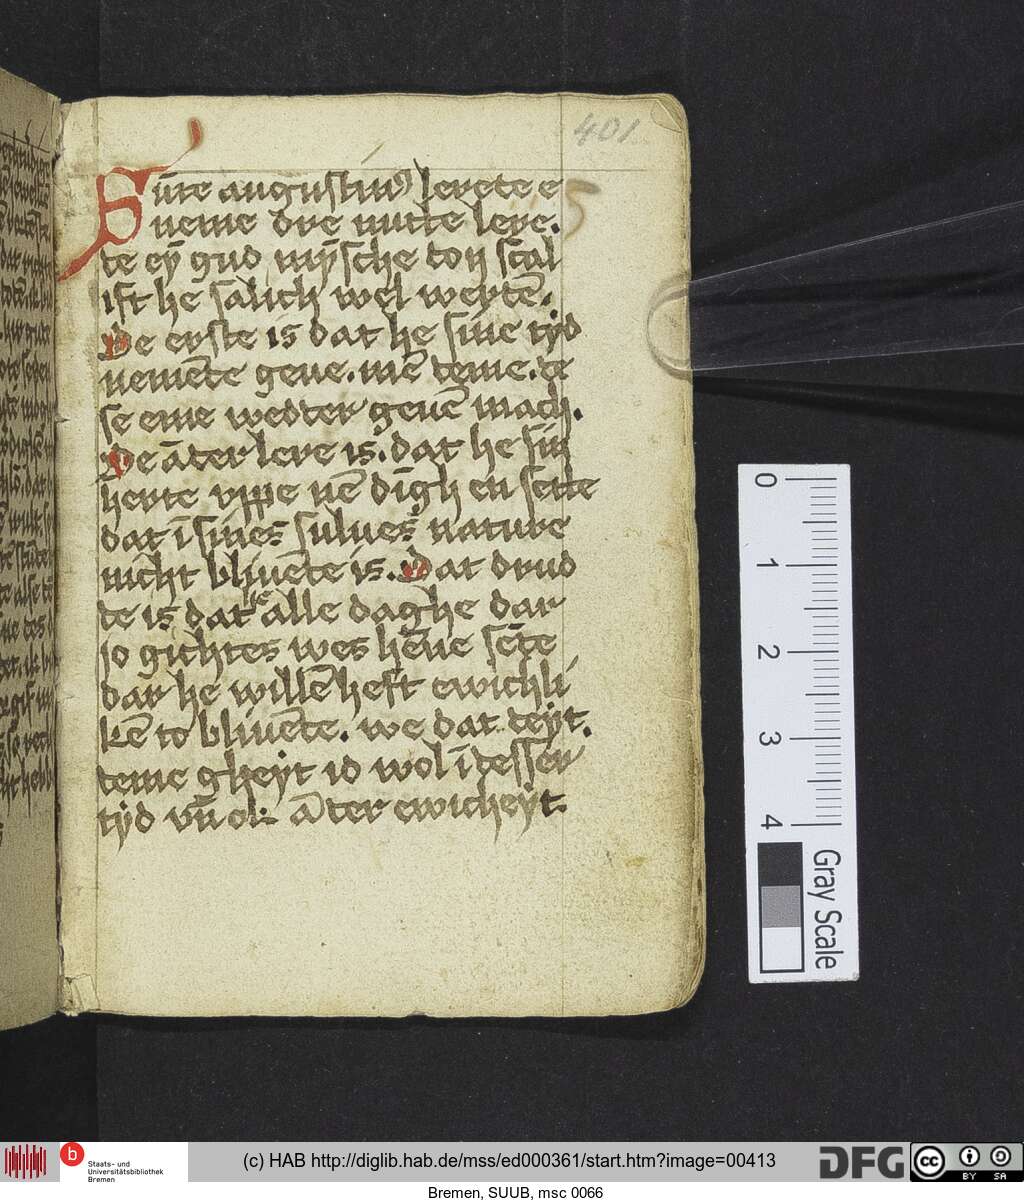 401
5
Sūte augustinꝰ lerete e
neme dre nutte lere.
te eȳ gud mȳsche don scal
ist he salich wel weytē.
De erste is dat he sine tyd
nemēte geue. mē teme. te
se eme wedder geuē mach.
De āter lere is. dat he sin
herte vppe nē dīgh en sette
dat ī sines sulues nature
nicht bliuēte is. Dat drud
te is dat he alle daghe dar
io gichtes wes hēne sēte
dar he willē heft ewichli
kē to bliuēte. we dat deyt.
teme gheyt id wol ī tesser
tyd vn̄ ok āter ewicheyt.
0
1
2
3
4
Gray Scale
b Staats- und
Universitätsbibliothek
Bremen
(c) HAB http://diglib.hab.de/mss/ed000361/start.htm?image=00413
DFG
cc BY SA
Bremen, SUUB, msc 0066